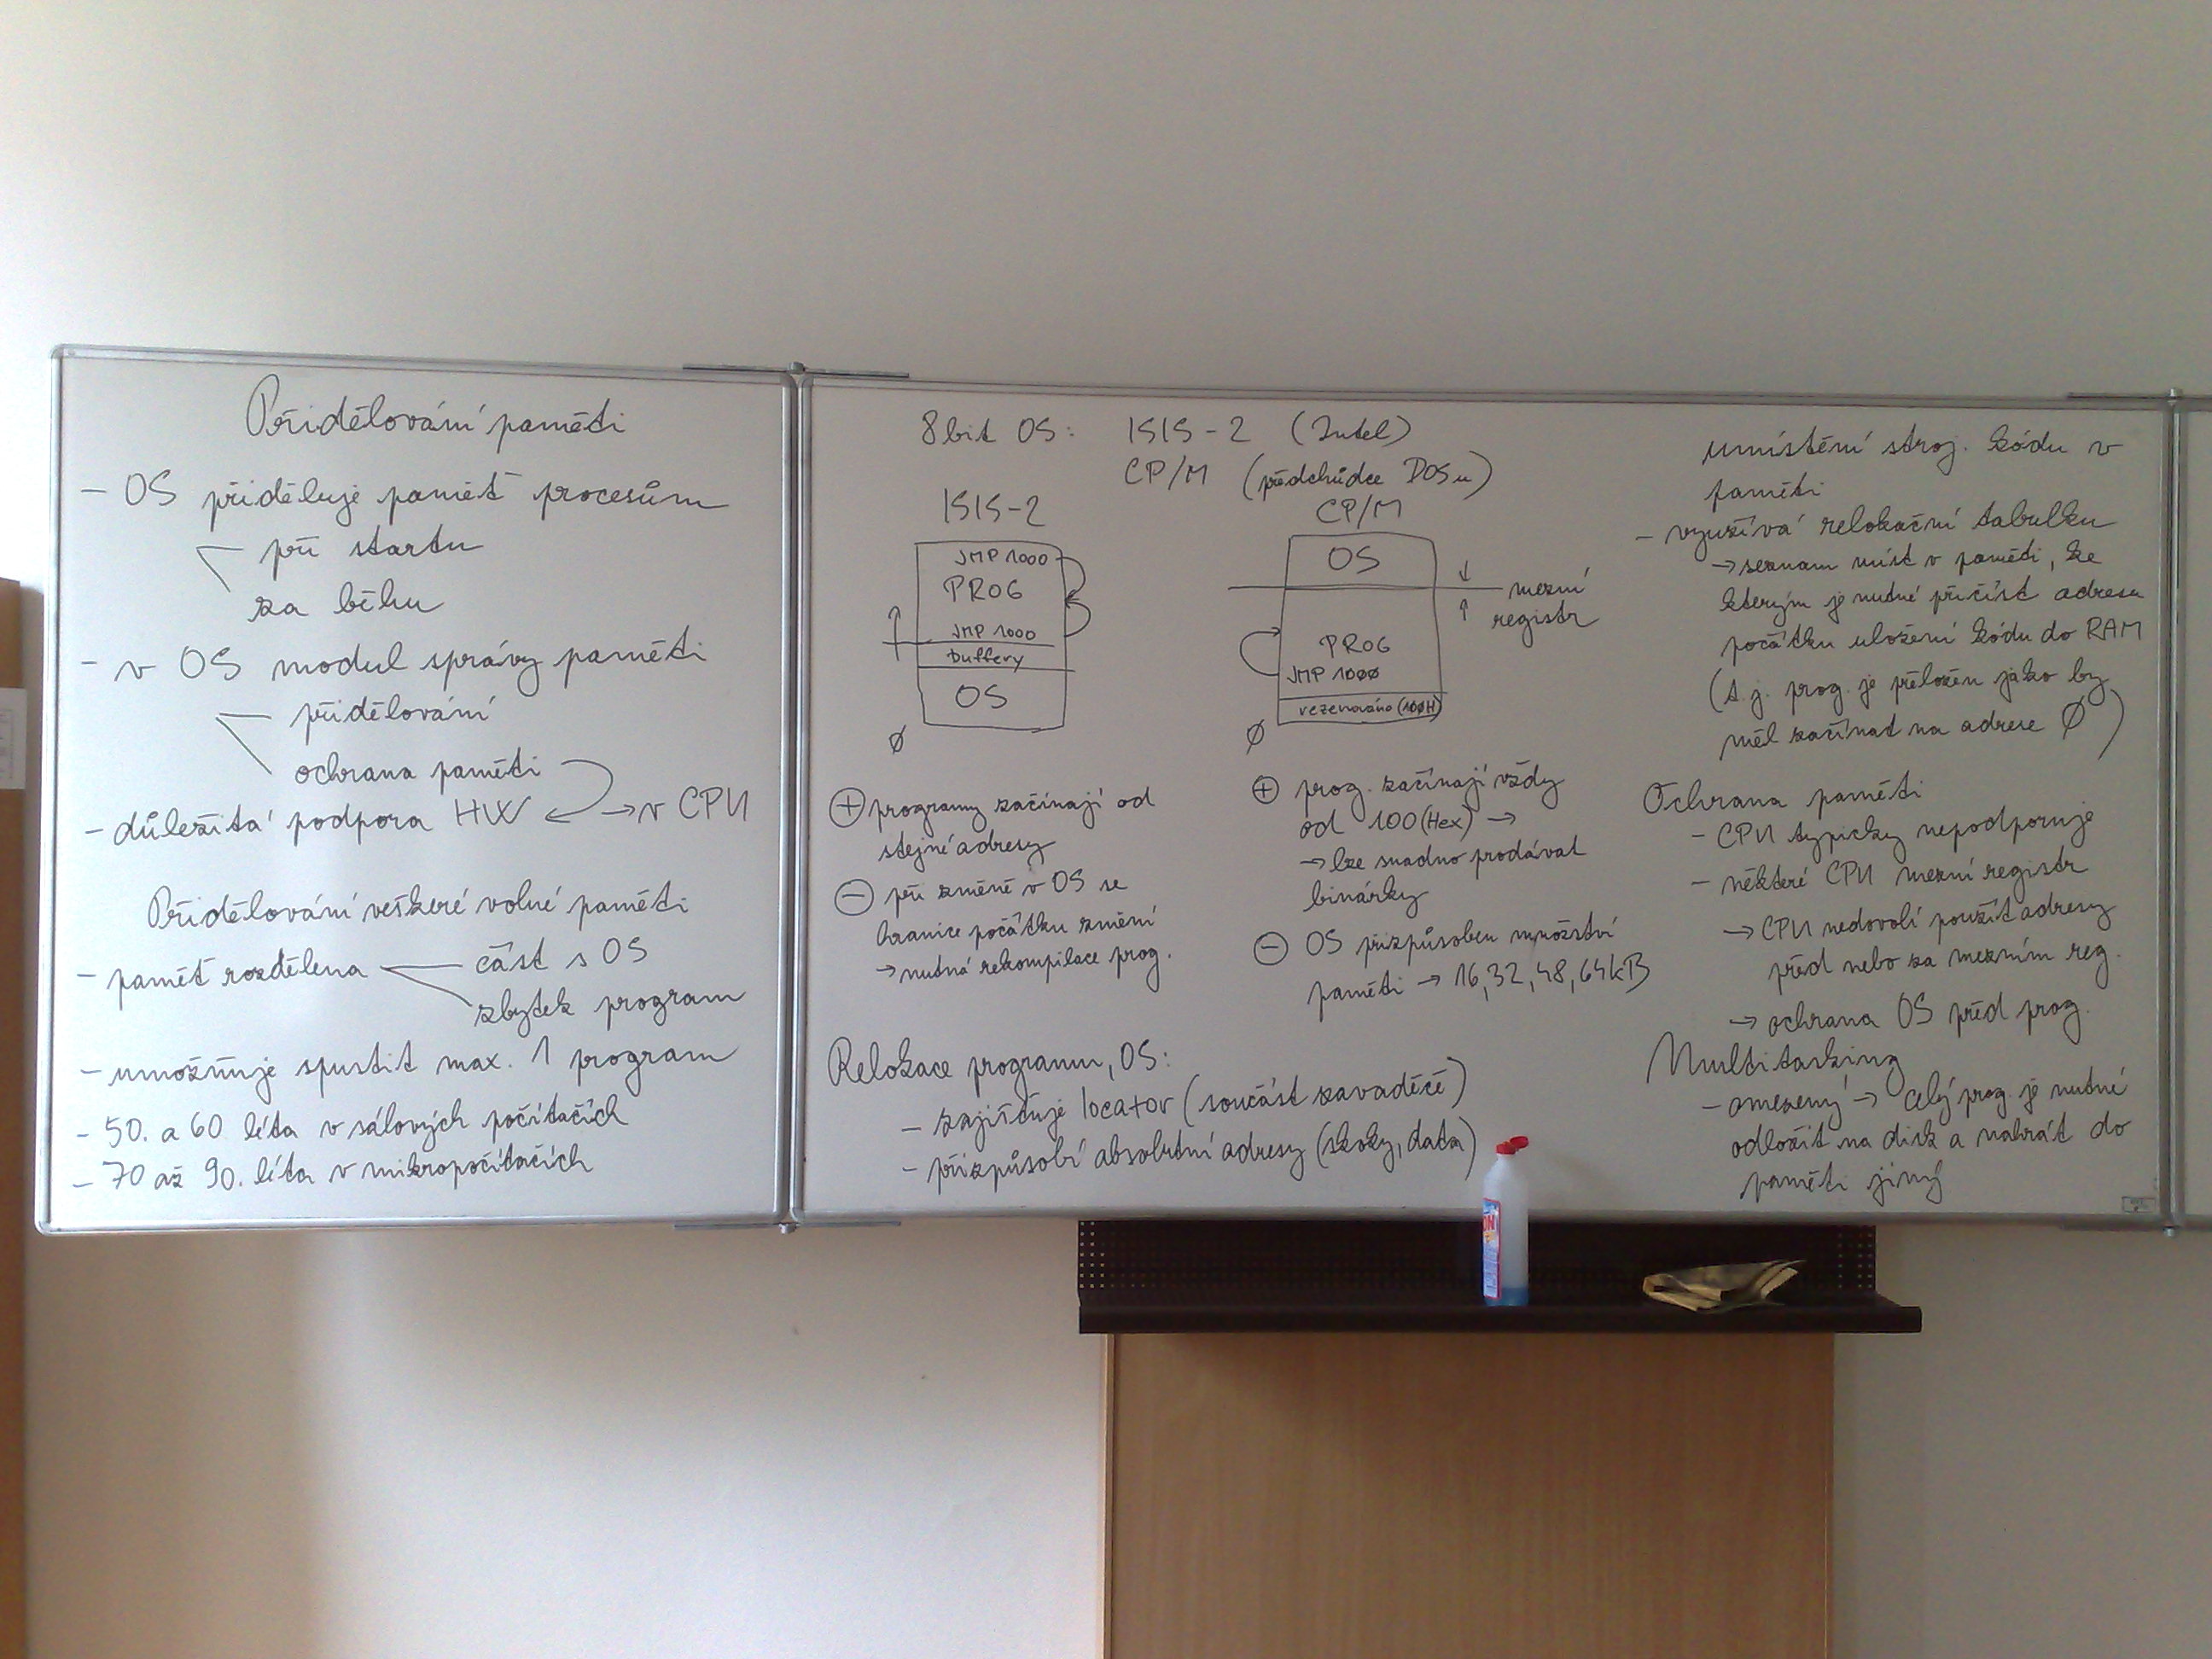 Přidělování paměti
- OS přiděluje paměť procesům
při startu
za běhu
- v OS modul správy paměti
přidělování
ochrana paměti
- důležitá podpora HW ← → v CPU
Přidělování veškeré volné paměti
- paměť rozdělena
část s OS
zbytek program
- umožňuje spustit max. 1 program
- 50. a 60 léta v sálových počítačích
- 70 až 90. léta v mikropočítačích
8bit OS: ISIS-2 (Intel)
CP/M (předchůdce DOSu)
ISIS-2
JMP 1000
PROG
JMP 1000
buffery
OS
Ø
⊕ programy začínají od
stejné adresy
⊖ při změně v OS se
hranice počátku změní
→ nutná rekompilace prog.
CP/M
OS
mezní
registr
PROG
JMP 1ØØØ
rezervováno (1ØØH)
Ø
⊕ prog. začínají vždy
od 100 (Hex) →
→ lze snadno prodávat
binárky
⊖ OS přizpůsoben množství
paměti → 16, 32, 48, 64kB
Relokace programu, OS:
- zajišťuje locator (součást zavaděče)
- přizpůsobí absolutní adresy (skoky, data)
umístění stroj. kódu v
paměti
- využívá relokační tabulku
→ seznam míst v paměti, ke
kterým je nutné přičíst adresu
počátku uložení kódu do RAM
(t.j. prog. je přeložen jako by
měl začínat na adrese Ø)
Ochrana paměti
- CPU typicky nepodporuje
- některé CPU mezní registr
→ CPU nedovolí použít adresy
před nebo za mezním reg.
→ ochrana OS před prog.
Multitasking
- omezený → celý prog. je nutné
odložit na disk a nahrát do
paměti jiný